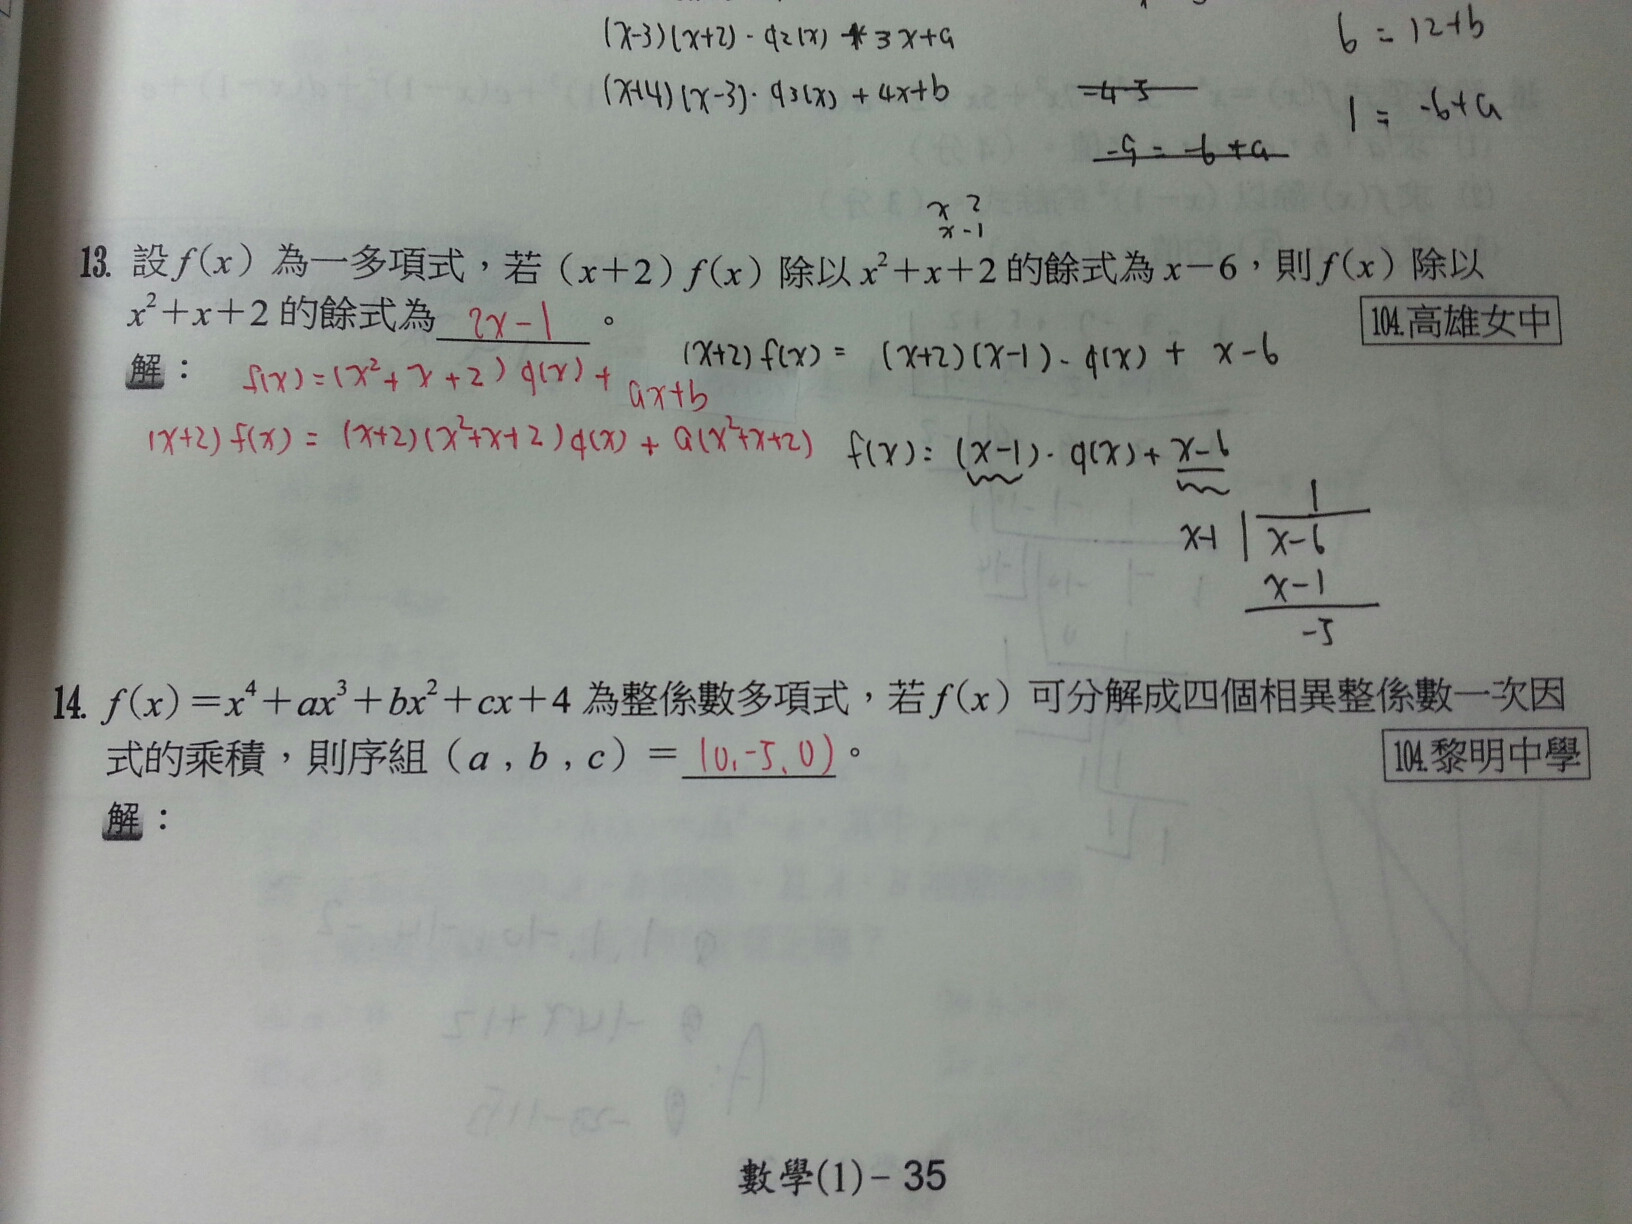 (x-3)(x+2)·q2(x) + 3x+a
(x+4)(x-3)·q3(x) + 4x+b
6 = 12+b
=4-5
1 = -6+a
-9 = -6+a
x 2
x -1
13. 設 f(x) 為一多項式，若 (x+2) f(x) 除以 x²+x+2 的餘式為 x-6，則 f(x) 除以
x²+x+2 的餘式為 2x-1 。
104.高雄女中
解：
f(x)=(x²+x+2)q(x)+ax+b
(x+2)f(x) = (x+2)(x-1)·q(x) + x-6
(x+2)f(x) = (x+2)(x²+x+2)q(x) + a(x²+x+2)
f(x) = (x-1)·q(x) + x-6
1
x-1 x-6
x-1
-5
14. f(x)=x⁴+ax³+bx²+cx+4 為整係數多項式，若 f(x) 可分解成四個相異整係數一次因
式的乘積，則序組 (a , b , c) = (0,-5,0) 。
104.黎明中學
解：
數學(1)-35